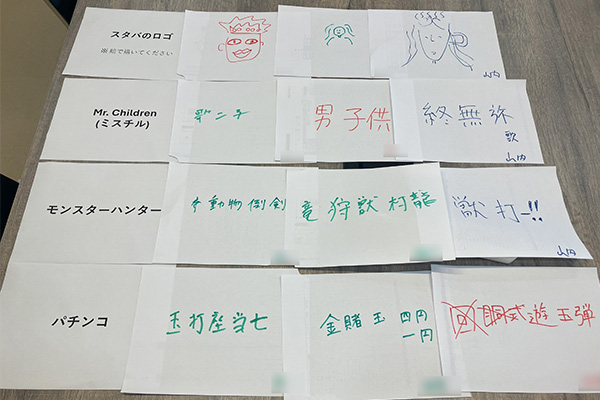 スタバのロゴ
※絵で描いてください
山内
Mr. Children
(ミスチル)
歌二子
男子供
終無弥
歌
山内
モンスターハンター
大動物倒剣
竜狩獣村龍
獣打ー!!
山内
パチンコ
玉打座当七
金賭玉 四円
一円
回胴式遊玉弾